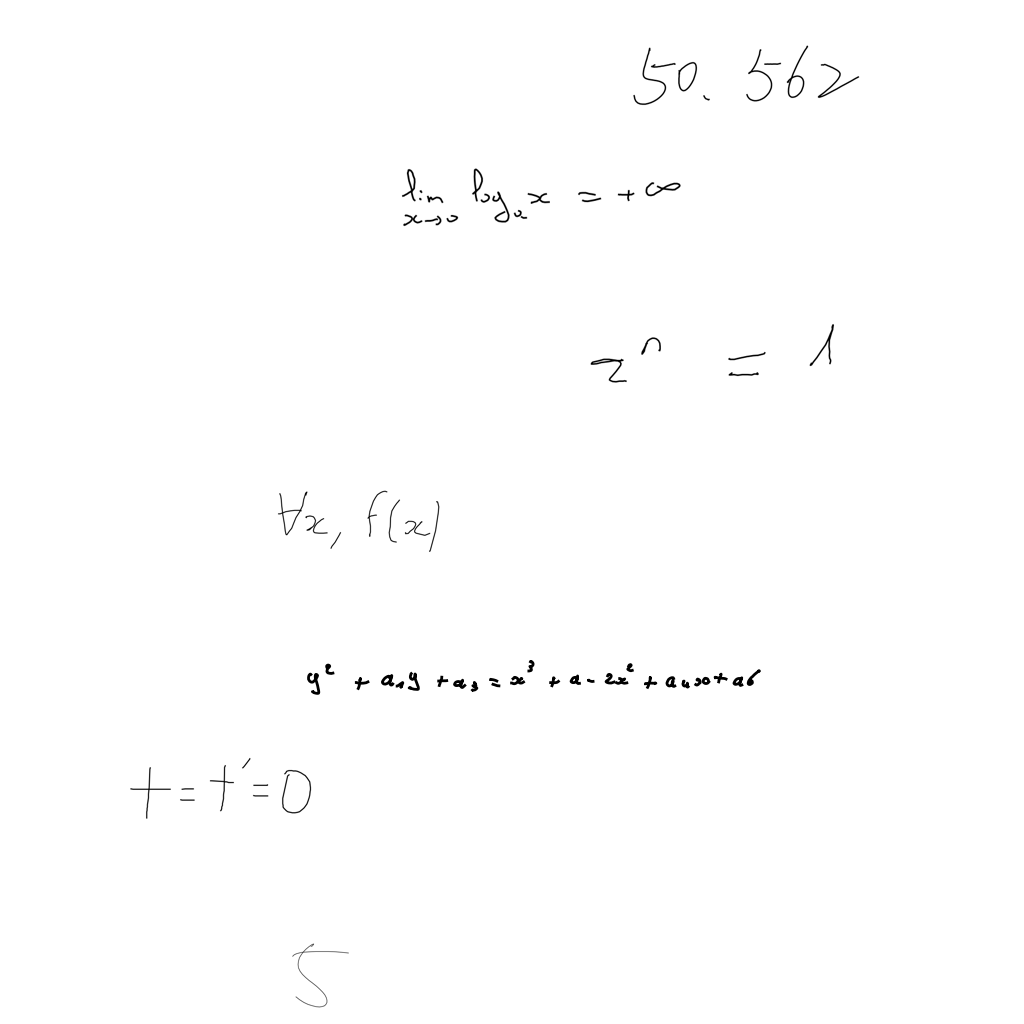 50.562
lim_{x→0} log_a x = +∞
z^n = 1
∀x, f(x)
y^2 + a_1y + a_3 = x^3 + a - 2x^2 + a_4x + a6
t = t' = 0
5